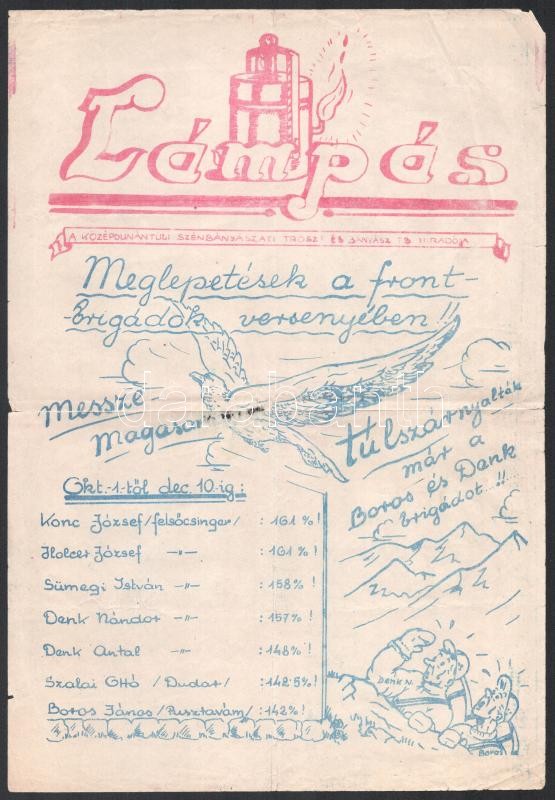 Lámpás
A KÖZÉPDUNÁNTULI SZÉNBÁNYÁSZATI TRÖSZT ÉS BÁNYÁSZ TB HIRADÓJA
Meglepetések a front-
-brigádok versenyében!!
Messze
magasan
túlszárnyalták
már a
Boros és Denk
brigádot...!!
Okt.-1-től dec. 10.-ig:
Konc József /felsőcsinger/ : 161 %!
Holcer József -"- : 161 %!
Sümegi István -"- : 158%!
Denk Nándor -"- : 157% !
Denk Antal -"- : 148% !
Szalai Ottó /Dudar/ : 142·5% !
Boros János /Pusztavám/ : 142% !
DENK N.
Boros
darabanth